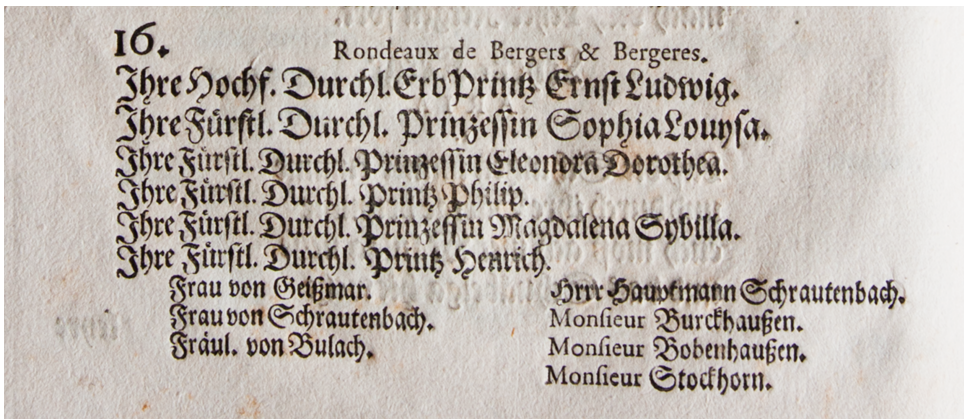 16.
Rondeaux de Bergers & Bergeres.
Ihre Hochf. Durchl. Erb Printz Ernst Ludwig.
Ihre Fürstl. Durchl. Prinzessin Sophia Louysa.
Ihre Fürstl. Durchl. Prinzessin Eleonora Dorothea.
Ihre Fürstl. Durchl. Printz Philip.
Ihre Fürstl. Durchl. Prinzessin Magdalena Sybilla.
Ihre Fürstl. Durchl. Printz Henrich.
Frau von Geißmar. Herr Hauptmann Schrautenbach.
Frau von Schrautenbach. Monsieur Burckhaußen.
Fräul. von Bulach. Monsieur Bobenhaußen.
Monsieur Stockhorn.